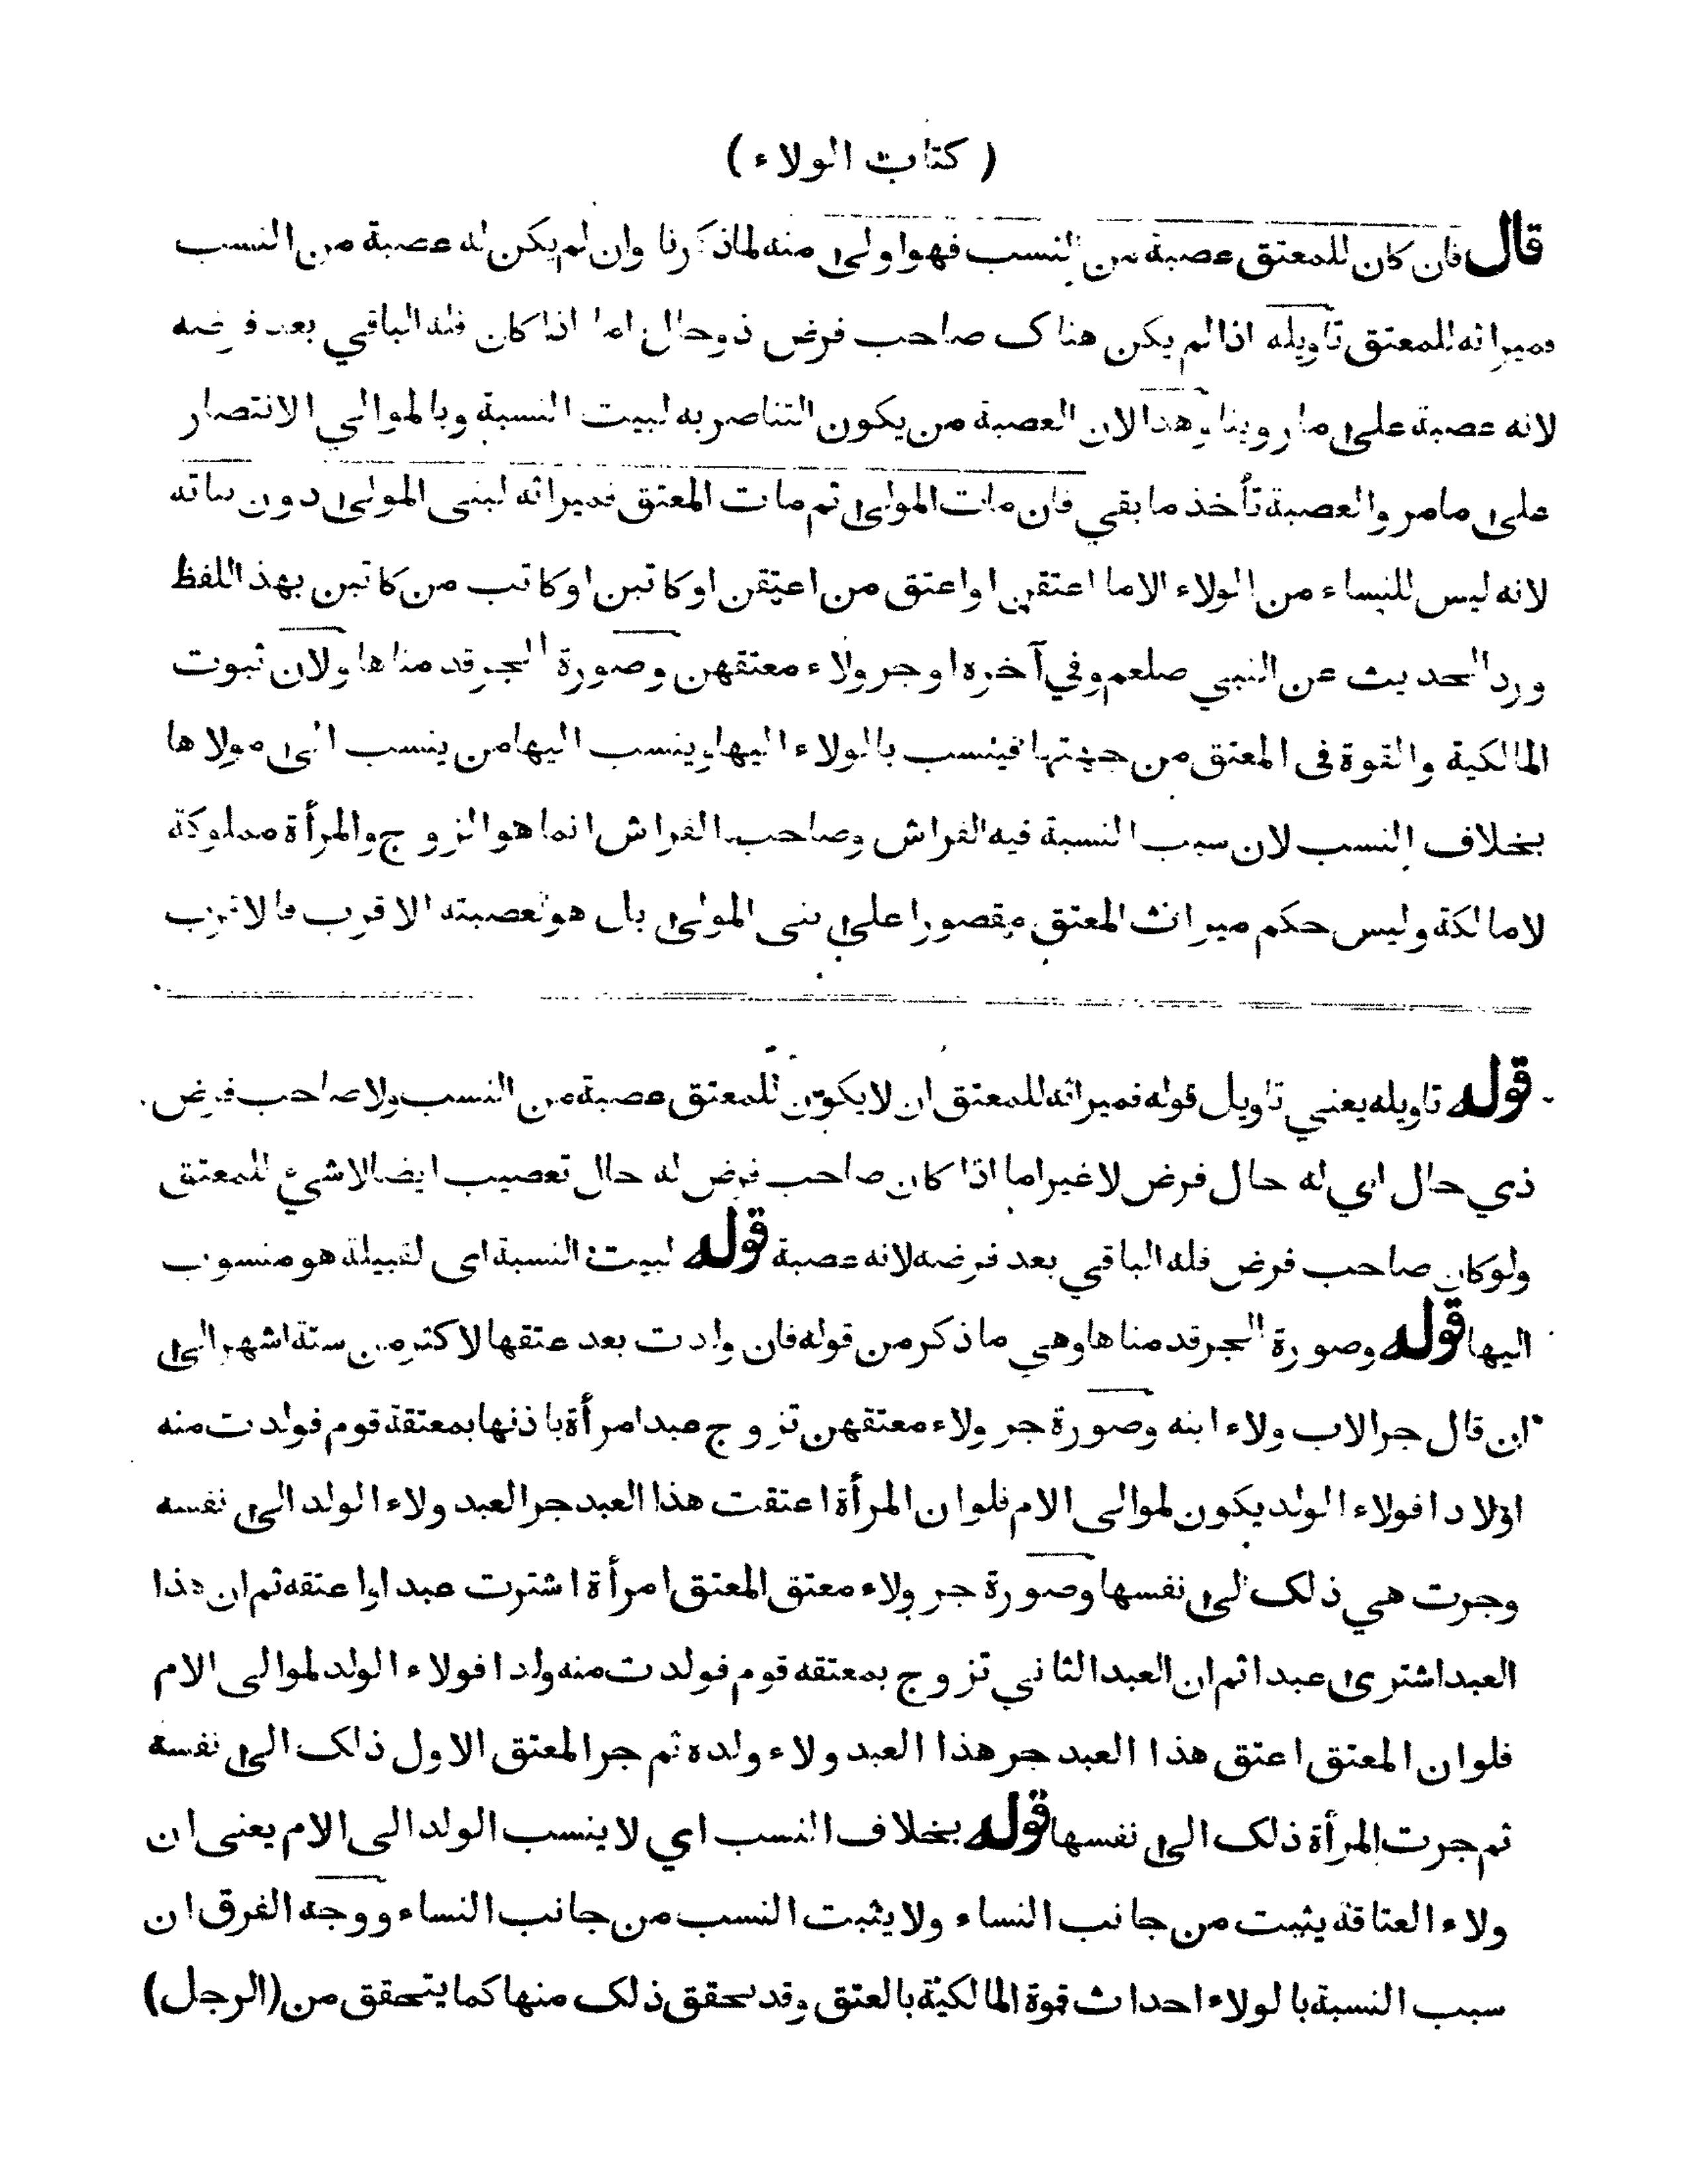 ( كتاب الولاء )
قال فان كان للمعتق عصبة من النسب فهو اولى منه لما ذكرنا وان لم يكن له عصبة من النسب
فميراثه للمعتق تاويله اذا لم يكن هناك صاحب فرض ذو حال اما اذا كان فله الباقي بعد فرضه
لانه عصبة على ما روينا وهذا لان العصبة من يكون التناصر به لبيت النسبة وبالموالي الانتصار
على ما مر والعصبة تأخذ ما بقي فان مات المولى ثم مات المعتق فميراثه لبنى المولى دون بناته
لانه ليس للنساء من الولاء الا ما اعتقن او اعتق من اعتقن او كاتبن او كاتب من كاتبن بهذا اللفظ
ورد الحديث عن النبي صلعم وفي آخره او جر ولاء معتقهن وصورة الجر قدمناها ولان ثبوت
المالكية والقوة فى المعتق من جهتها فينسب بالولاء اليها وينسب اليها من ينسب الى مولاها
بخلاف النسب لان سبب النسبة فيه الفراش وصاحب الفراش انما هو الزوج والمرأة مملوكة
لا مالكة وليس حكم ميراث المعتق مقصورا على بنى المولى بل هو لعصبته الاقرب فالاقرب
قوله تاويله يعني تاويل قوله فميراثه للمعتق ان لا يكون للمعتق عصبة من النسب ولا صاحب فرض
ذي حال اي له حال فرض لا غير اما اذا كان صاحب فرض له حال تعصيب ايضا لا شيئ للمعتق
ولو كان صاحب فرض فله الباقي بعد فرضه لانه عصبة قوله لبيت النسبة اى لقبيلة هو منسوب
اليها قوله وصورة الجر قدمناها وهي ما ذكر من قوله فان ولدت بعد عتقها لاكثر من ستة اشهر الى
ان قال جر الاب ولاء ابنه وصورة جر ولاء معتقهن تزوج عبد امرأة باذنها بمعتقة قوم فولدت منه
اولادا فولاء الولد يكون لموالى الام فلو ان المرأة اعتقت هذا العبد جر العبد ولاء الولد الى نفسه
وجرت هي ذلك الى نفسها وصورة جر ولاء معتق المعتق امرأة اشترت عبدا واعتقه ثم ان هذا
العبد اشترى عبدا ثم ان العبد الثاني تزوج بمعتقه قوم فولدت منه ولدا فولاء الولد لموالى الام
فلو ان المعتق اعتق هذا العبد جر هذا العبد ولاء ولده ثم جر المعتق الاول ذلك الى نفسه
ثم جرت المرأة ذلك الى نفسها قوله بخلاف النسب اي لا ينسب الولد الى الام يعنى ان
ولاء العتاقة يثبت من جانب النساء ولا يثبت النسب من جانب النساء ووجه الفرق ان
سبب النسبة بالولاء احداث قوة المالكية بالعتق وقد تحقق ذلك منها كما يتحقق من (الرجل)